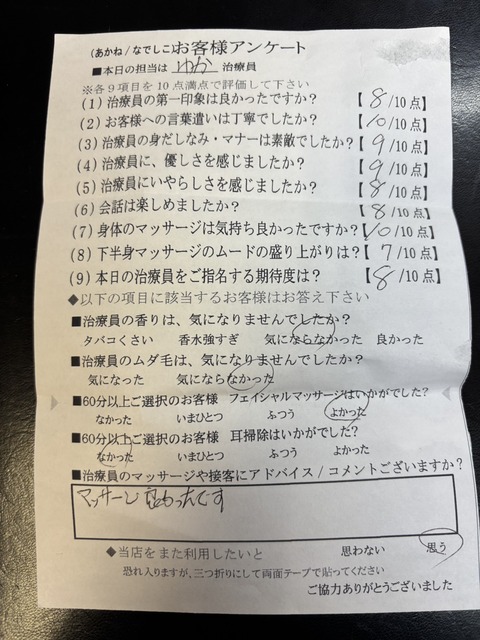 (あかね/なでしこ)お客様アンケート
■本日の担当は ゆか 治療員
※各9項目を10点満点で評価して下さい
(1)治療員の第一印象は良かったですか? 【 8/10点】
(2)お客様への言葉遣いは丁寧でしたか? 【 10/10点】
(3)治療員の身だしなみ・マナーは素敵でしたか?【 9/10点】
(4)治療員に、優しさを感じましたか? 【 9/10点】
(5)治療員にいやらしさを感じましたか? 【 8/10点】
(6)会話は楽しめましたか? 【 8/10点】
(7)身体のマッサージは気持ち良かったですか?【10/10点】
(8)下半身マッサージのムードの盛り上がりは?【 7/10点】
(9)本日の治療員をご指名する期待度は? 【 8/10点】
◆以下の項目に該当するお客様はお答え下さい
■治療員の香りは、気になりませんでしたか?
タバコくさい 香水強すぎ 気にならなかった 良かった
■治療員のムダ毛は、気になりませんでしたか?
気になった 気にならなかった
■60分以上ご選択のお客様 フェイシャルマッサージはいかがでした?
なかった いまひとつ ふつう よかった
■60分以上ご選択のお客様 耳掃除はいかがでした?
なかった いまひとつ ふつう よかった
■治療員のマッサージや接客にアドバイス/コメントございますか?
マッサージ良かったです
◆当店をまた利用したいと 思わない 思う
恐れ入りますが、三つ折りにして両面テープで貼ってください
ご協力ありがとうございました